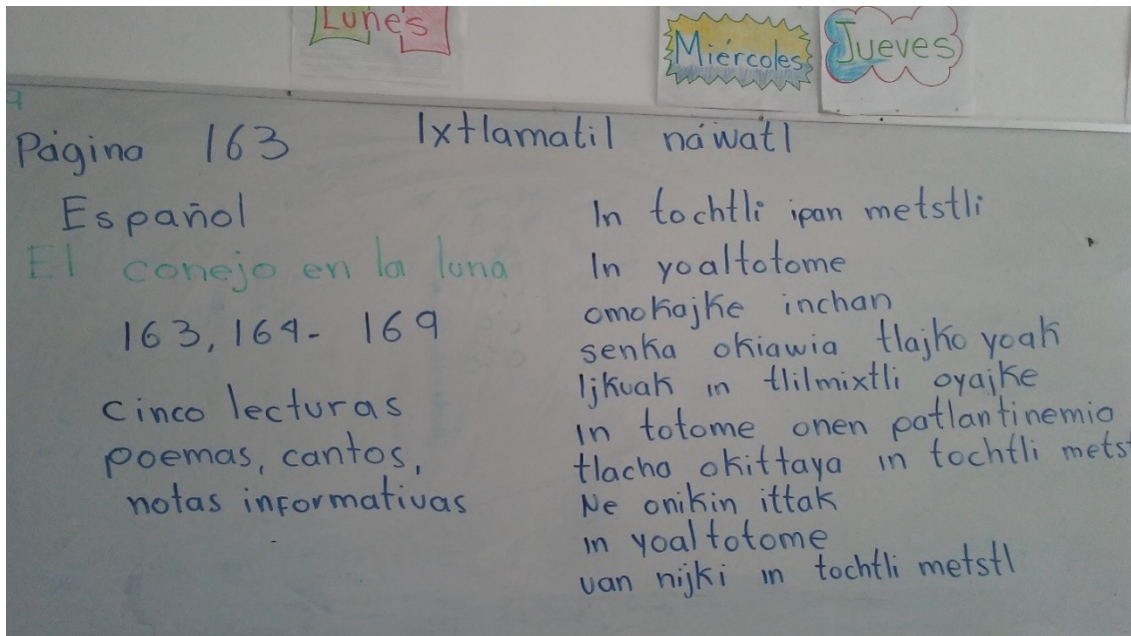 Lunes
Miércoles
Jueves
Página 163
Español
El conejo en la luna
163, 164- 169
cinco lecturas
poemas, cantos,
notas informativas
Ixtlamatil náwatl
In tochtli ipan metstli
In yoaltotome
omokajke inchan
senka okiawia tlajko yoak
Ijkuak in tlilmixtli oyajke
in totome onen patlantinemia
tlacha okittaya in tochtli metst
Ne onikin ittak
in yoaltotome
uan nijki in tochtli metstl